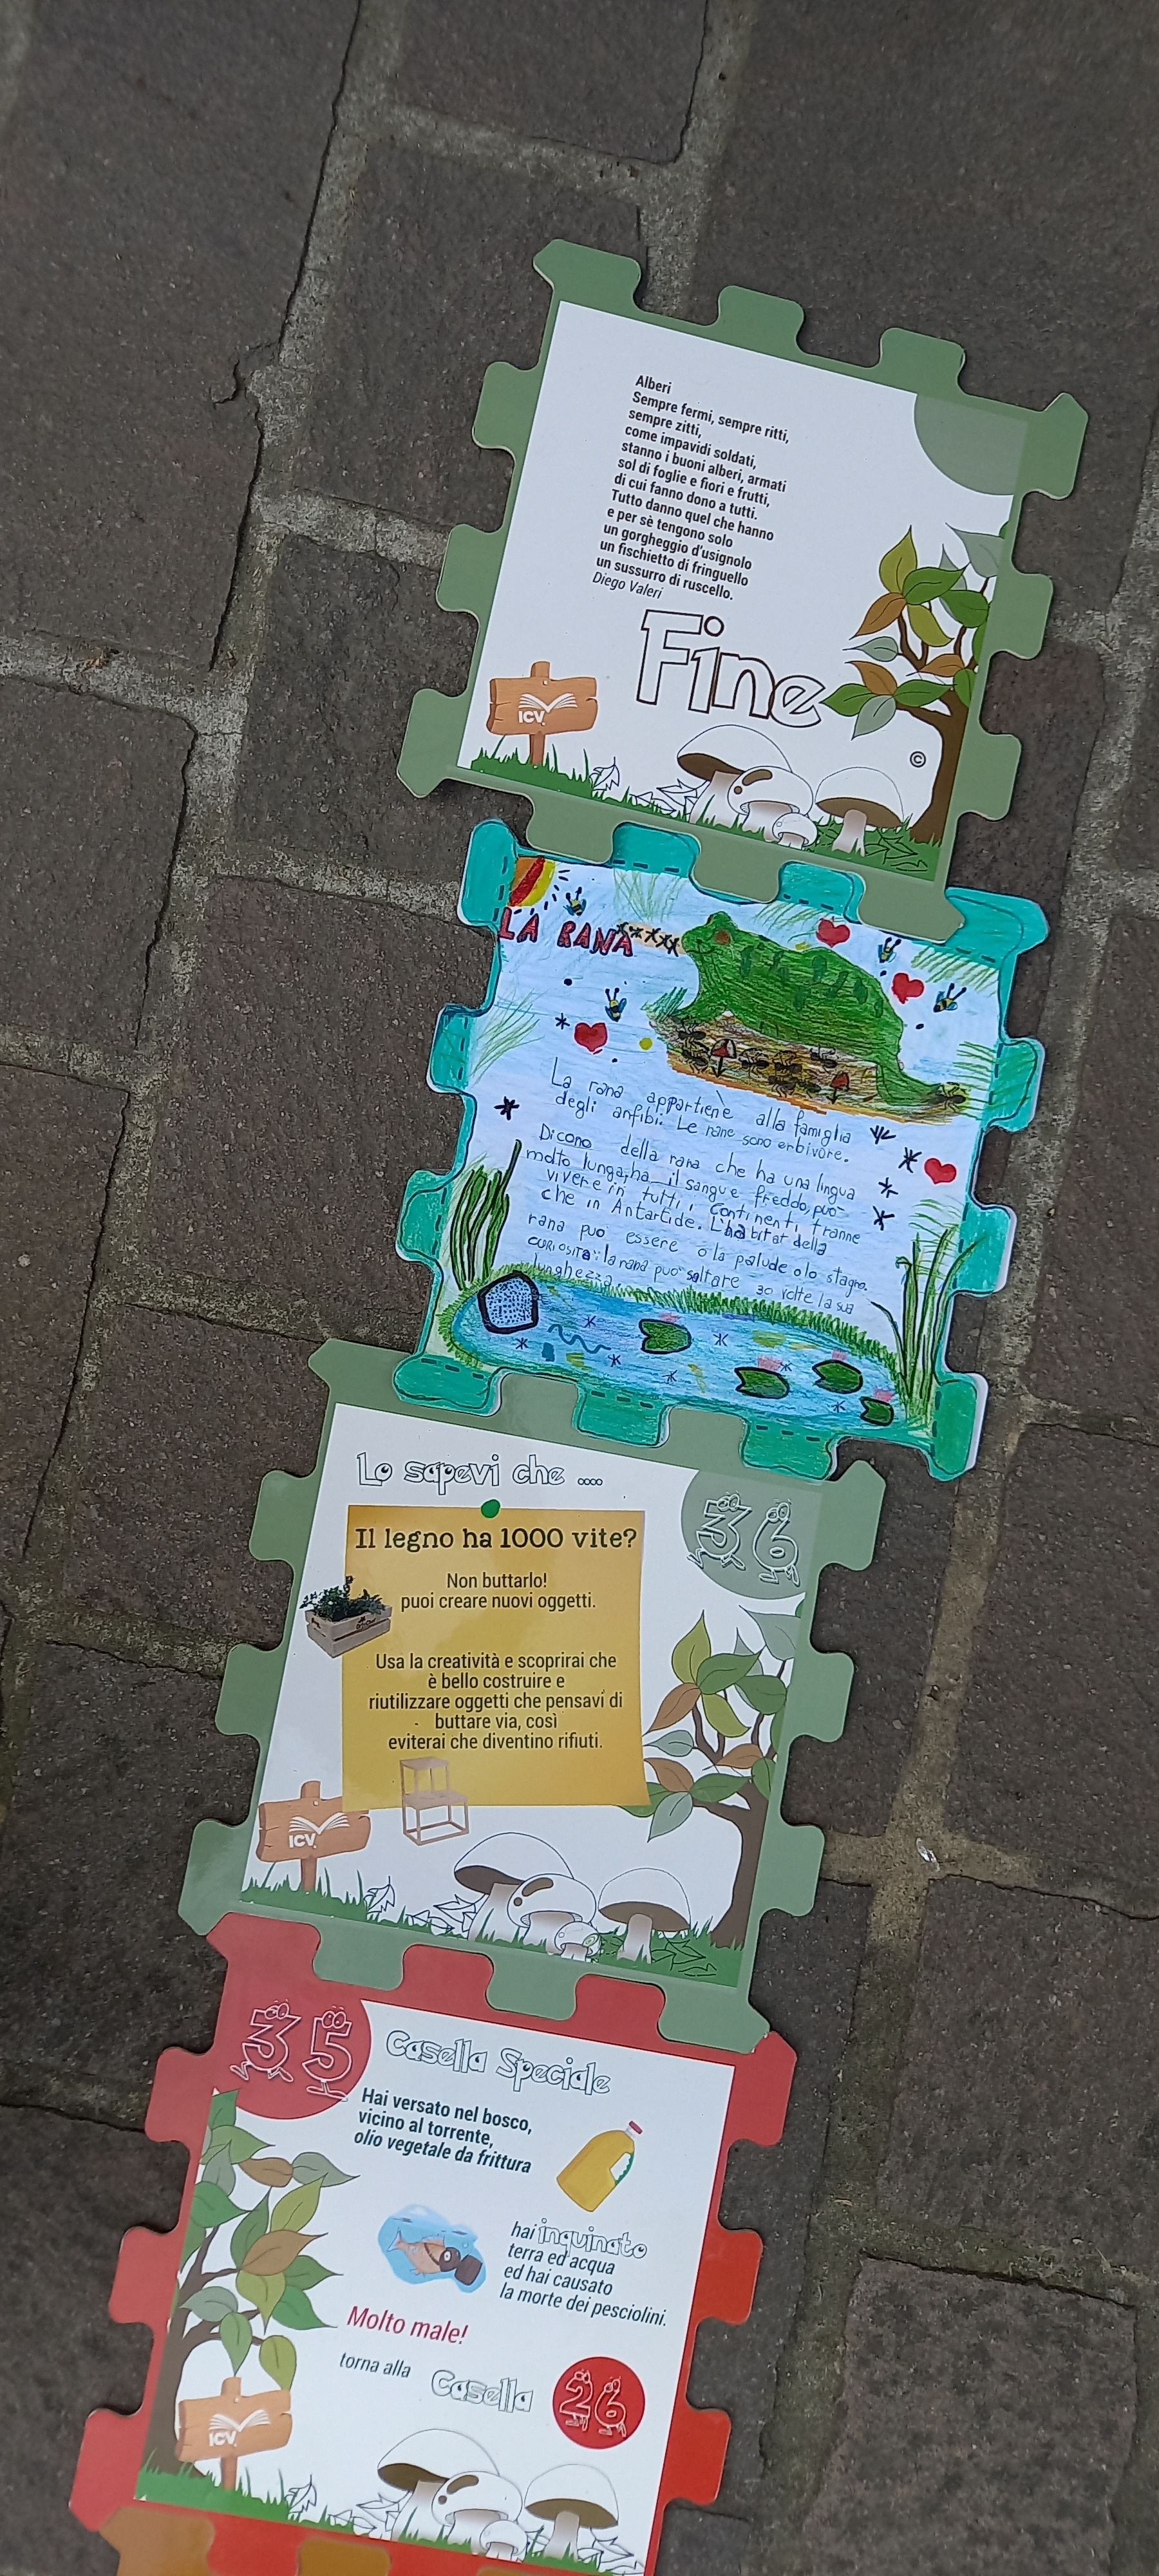 Alberi
Sempre fermi, sempre ritti,
sempre zitti,
come impavidi soldati,
stanno i buoni alberi, armati
sol di foglie e fiori e frutti,
di cui fanno dono a tutti.
Tutto danno quel che hanno
e per sè tengono solo
un gorgheggio d'usignolo
un fischietto di fringuello
un sussurro di ruscello.
Diego Valeri
Fine
ICV
©
LA RANA
La rana appartiene alla famiglia
degli anfibi. Le rane sono erbivore.
Dicono della rana che ha una lingua
molto lunga, ha il sangue freddo, può
vivere in tutti i continenti tranne
che in Antartide. L'habitat della
rana può essere o la palude o lo stagno.
CURIOSITà: la rana può saltare 30 volte la sua
lunghezza.
Lo sapevi che ....
36
Il legno ha 1000 vite?
Non buttarlo!
puoi creare nuovi oggetti.
Usa la creatività e scoprirai che
è bello costruire e
riutilizzare oggetti che pensavi di
buttare via, così
eviterai che diventino rifiuti.
ICV
35
Casella Speciale
Hai versato nel bosco,
vicino al torrente,
olio vegetale da frittura
hai inquinato
terra ed acqua
ed hai causato
la morte dei pesciolini.
Molto male!
torna alla Casella 26
ICV